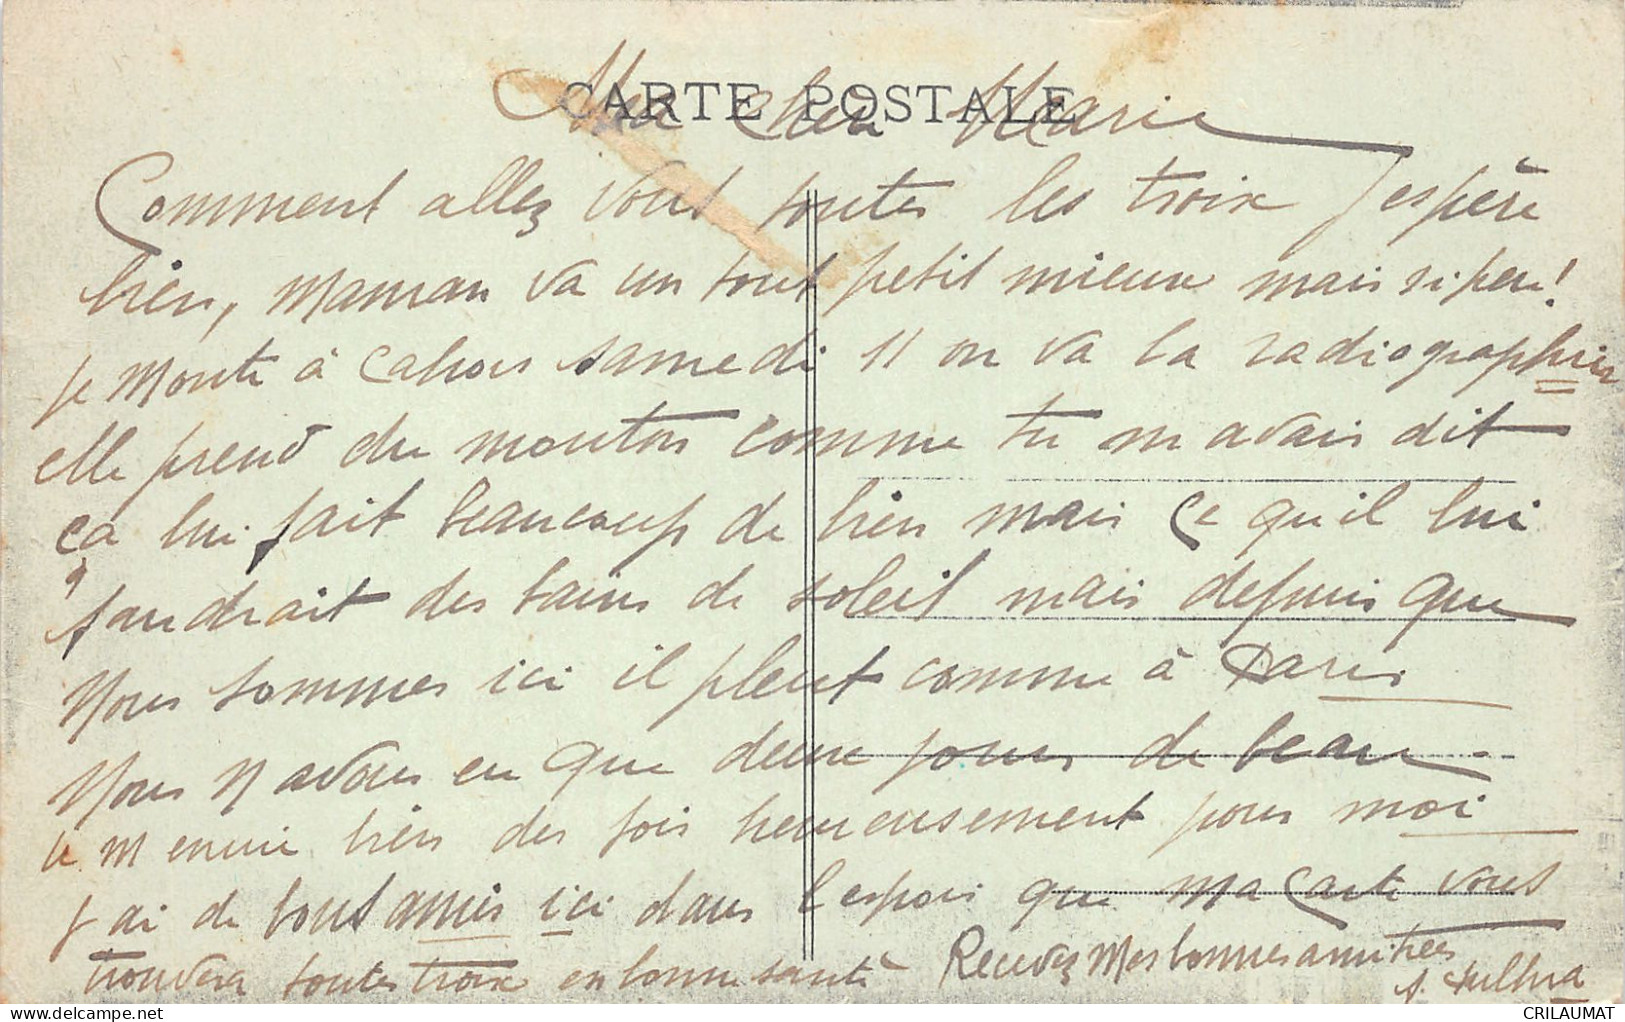 CARTE POSTALE
Ma cher Marie
Comment allez vous toutes les troix J espère
bien, Maman va un tout petit mieux mais si peu!
je monte à Cahors samedi 11 on va la radiographier
elle prend du mouton comme tu m avais dit
ça lui fait beaucoup de bien mais ce qu il lui
faudrait des bains de soleil mais depuis que
nous sommes ici il pleut comme à Paris
nous n avons eu que deux jours de beau
je m ennui bien des fois heureusement pour moi
j ai de bons amis ici dans l espoir que ma carte vous
trouvera toutes troix en bonne santé Recevez Mes bonnes amitiées
delcampe.net
CRILAUMAT